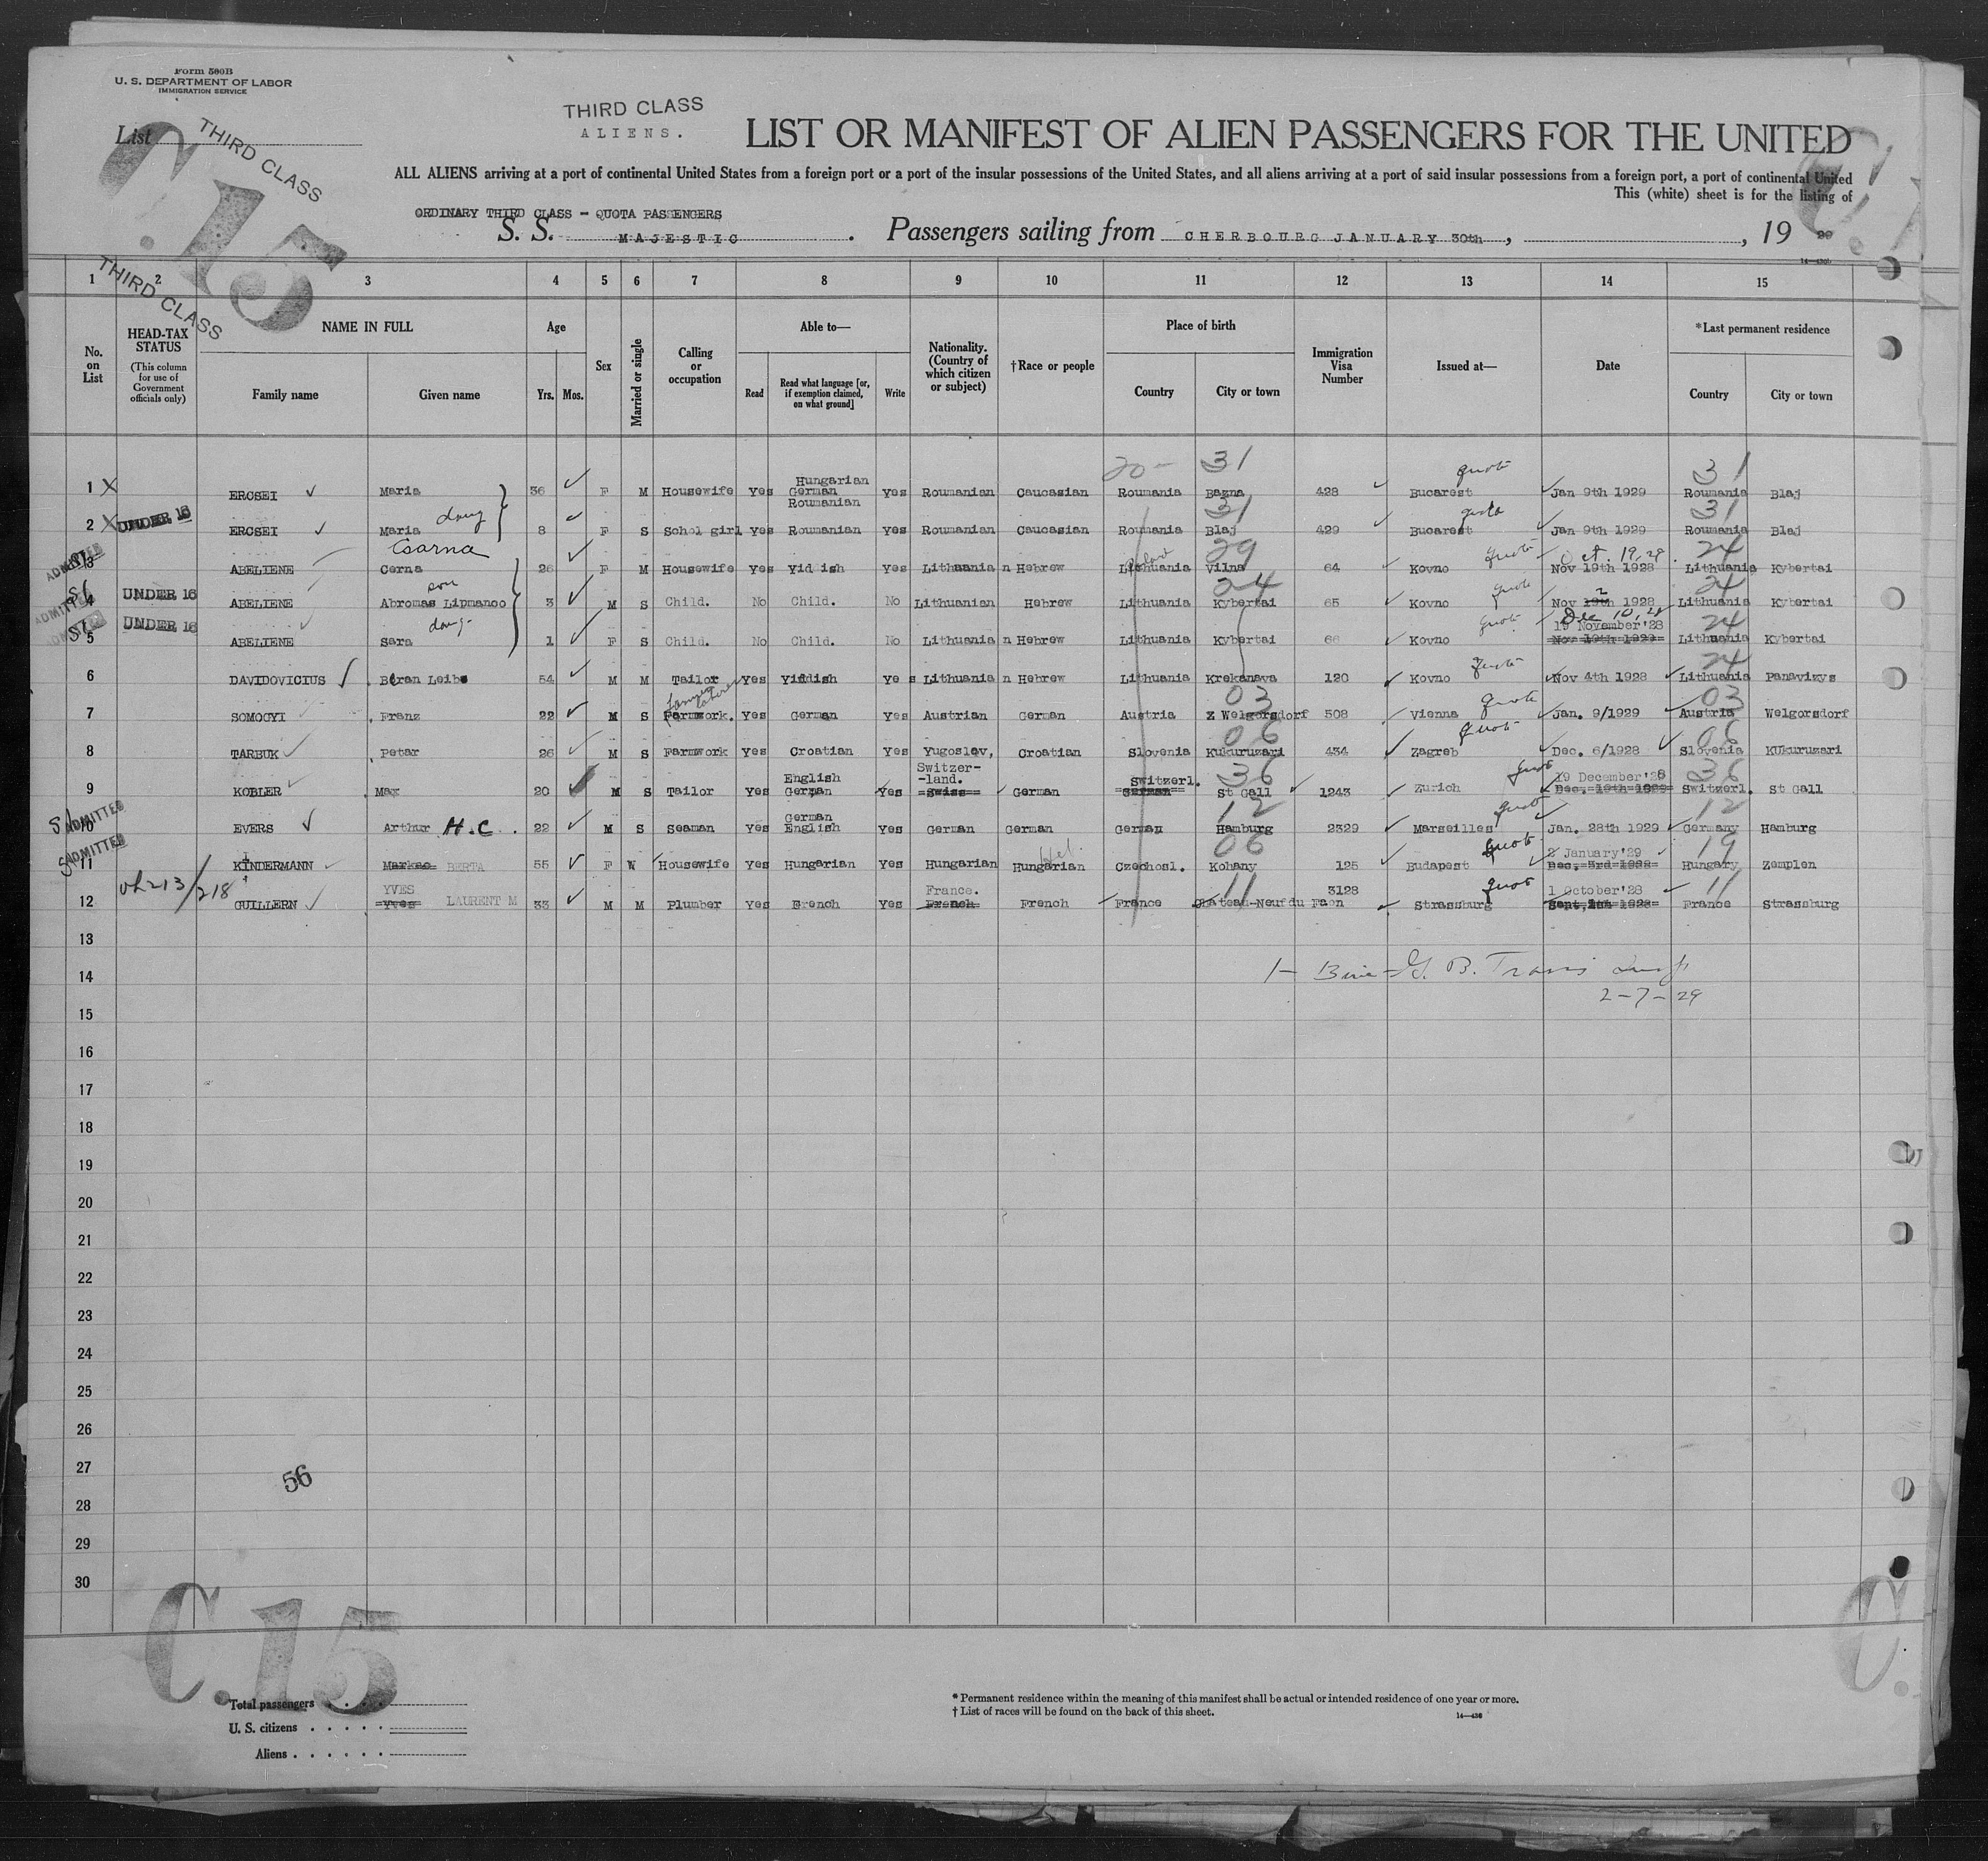 Form 500B
U. S. DEPARTMENT OF LABOR
IMMIGRATION SERVICE
List
THIRD CLASS
C.15
THIRD CLASS
ALIENS.
LIST OR MANIFEST OF ALIEN PASSENGERS FOR THE UNITED
ALL ALIENS arriving at a port of continental United States from a foreign port or a port of the insular possessions of the United States, and all aliens arriving at a port of said insular possessions from a foreign port, a port of continental United
This (white) sheet is for the listing of
ORDINARY THIRD CLASS - QUOTA PASSENGERS
S. S. MAJESTIC . Passengers sailing from CHERBOURG JANUARY 30th, , 19 29
THIRD CLASS
1 2 3 4 5 6 7 8 9 10 11 12 13 14 15
No. on List
HEAD-TAX STATUS
(This column for use of Government officials only)
NAME IN FULL
Family name Given name
Age
Yrs. Mos.
Sex
Married or single
Calling or occupation
Able to—
Read
Read what language [or, if exemption claimed, on what ground]
Write
Nationality. (Country of which citizen or subject)
†Race or people
Place of birth
Country City or town
Immigration Visa Number
Issued at—
Date
*Last permanent residence
Country City or town
20- 31 quota 31
Hungarian
1 X ERCSEI Maria 36 F M Housewife Yes German Yes Roumanian Caucasian Roumania Bazna 428 Bucarest Jan 9th 1929 Roumania Blaj
Roumanian
daug 31 quota 31
2 X UNDER 16 ERCSEI Maria 8 F S Schol girl Yes Roumanian Yes Roumanian Caucasian Roumania Blaj 429 Bucarest Jan 9th 1929 Roumania Blaj
Csarna 29 quota Oct. 19-28 24
ADMITTED SI 3 ABELIENE Cerna 26 F M Housewife Yes Yiddish Yes Lithuanian Hebrew Lithuania Vilna 64 Kovno Nov 19th 1928 Lithuania Kybertai
son 24 quota 24
ADMITTED SI 4 UNDER 16 ABELIENE Abromas Lipmanoo 3 M S Child. No Child. No Lithuanian Hebrew Lithuania Kybertai 65 Kovno Nov 19th 2 1928 Lithuania Kybertai
daug- quota Dec 10, 28 24
19 November'28
ADMITTED SI 5 UNDER 16 ABELIENE Sara 1 F S Child. No Child. No Lithuanian Hebrew Lithuania Kybertai 66 Kovno Nov 19th 1929 Lithuania Kybertai
quota 24
6 DAVIDOVICIUS Beran Leibe 54 M M Tailor Yes Yiddish Yes Lithuanian Hebrew Lithuania Krekanava 120 Kovno Nov 4th 1928 Lithuania Panavizys
03 quota 03
7 SOMOGYI Franz 22 M S Farmwork. Yes German Yes Austrian German Austria Z Welgersdorf 508 Vienna Jan. 9/1929 Austria Welgorsdorf
06 quota 06
8 TARBUK Petar 26 M S Farmwork Yes Croatian Yes Yugoslov, Croatian Slovenia Kukuruzari 434 Zagreb Dec. 6/1928 Slovenia Kukuruzari
English Switzer--land. Switzerl. 36 quota 19 December'28 36
9 KOBLER Max 20 M S Tailor Yes German Yes Swiss German German St Gall 1243 Zurich Dec. 19th 1929 Switzerl. St Gall
German 12 quota 12
SI ADMITTED 10 EVERS Arthur H.C. 22 M S Seaman Yes English Yes German German German Hamburg 2329 Marseilles Jan. 28th 1929 Germany Hamburg
06 quota 2 January'29 19
SI ADMITTED 11 KINDERMANN Markso BERTA 55 F W Housewife Yes Hungarian Yes Hungarian Hungarian Czechosl. Kohany 125 Budapest Dec. 3rd 1928 Hungary Zemplen
213/218
YVES France. 11 3128 quota 1 October'28 11
12 GUILLERN Yves LAURENT M 33 M M Plumber Yes French Yes French French France Chateau-Neuf du Faon Strassburg Sept, 1st 1928 France Strassburg
13
14
G. B. Travis
2-7-29
15
16
17
18
19
20
21
22
23
24
25
26
27
56
28
29
30
C.15
Total passengers
U. S. citizens
Aliens
* Permanent residence within the meaning of this manifest shall be actual or intended residence of one year or more.
† List of races will be found on the back of this sheet.
14—430